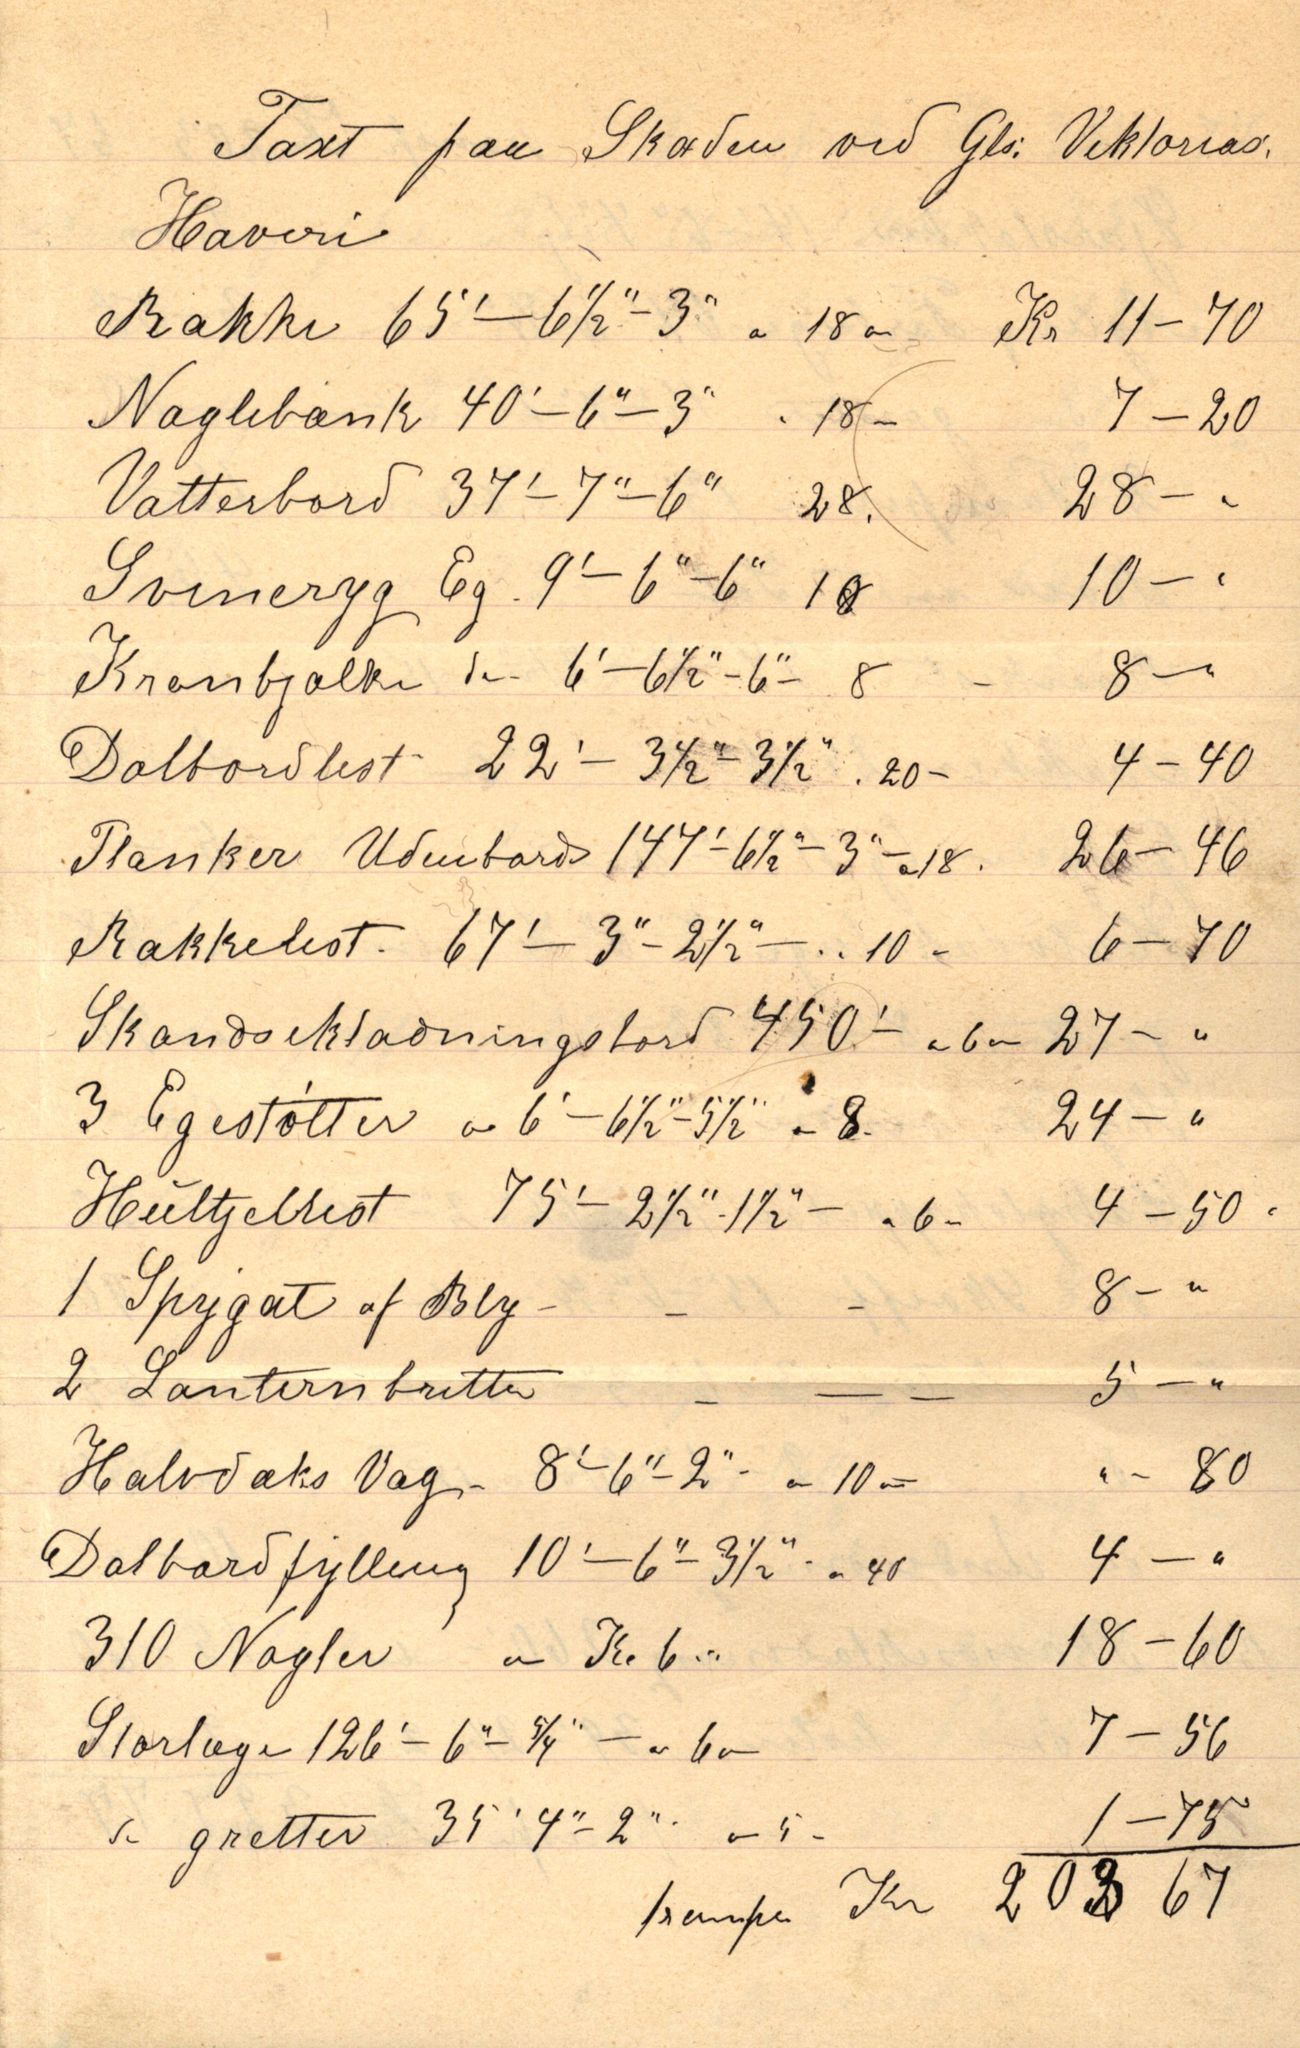 Taxt paa Skaden ved Gls: Viktorias.
Haveri
Rakke 65'–6½"–3" a 18 a Kr 11–70
Naglebænk 40'–6"–3" " 18– 7–20
Vatterbord 37'–7"–6" 28. 28– "
Svineryg Eg. 9'–6"–6" 10 10– "
Kronbjælke do 6'–6½"–6"– 8 – 8– "
Dolbordlist 22'–3½"–3½" . 20– 4–40
Planker Udenbords 147'–6½"–3"– a 18. 26–46
Rakkelist. 67'–3"–2½"– .. 10 – 6–70
Skandseklædningsbord 450'– a 6 a 27– "
3 Egestøtter a 6'–6½"–5½" a 8. 24– "
Hultjellist 75'–2½"–1½"– a 6– 4–50
1 Spygat af Bly – – – 8– "
2 Lanternbretter – – – 5– "
Halvdæks Vag – 8'–6"–2"– a 10 – " – 80
Dolbordfylling 10'–6"–3½" . a 40 4– "
310 Nagler a Kr 6 .. 18–60
Storluge 126'–6"–5/4"– a 6 a 7–56
do gretter 35' 4"–2" . a 5 – 1–75
Kr 203 67